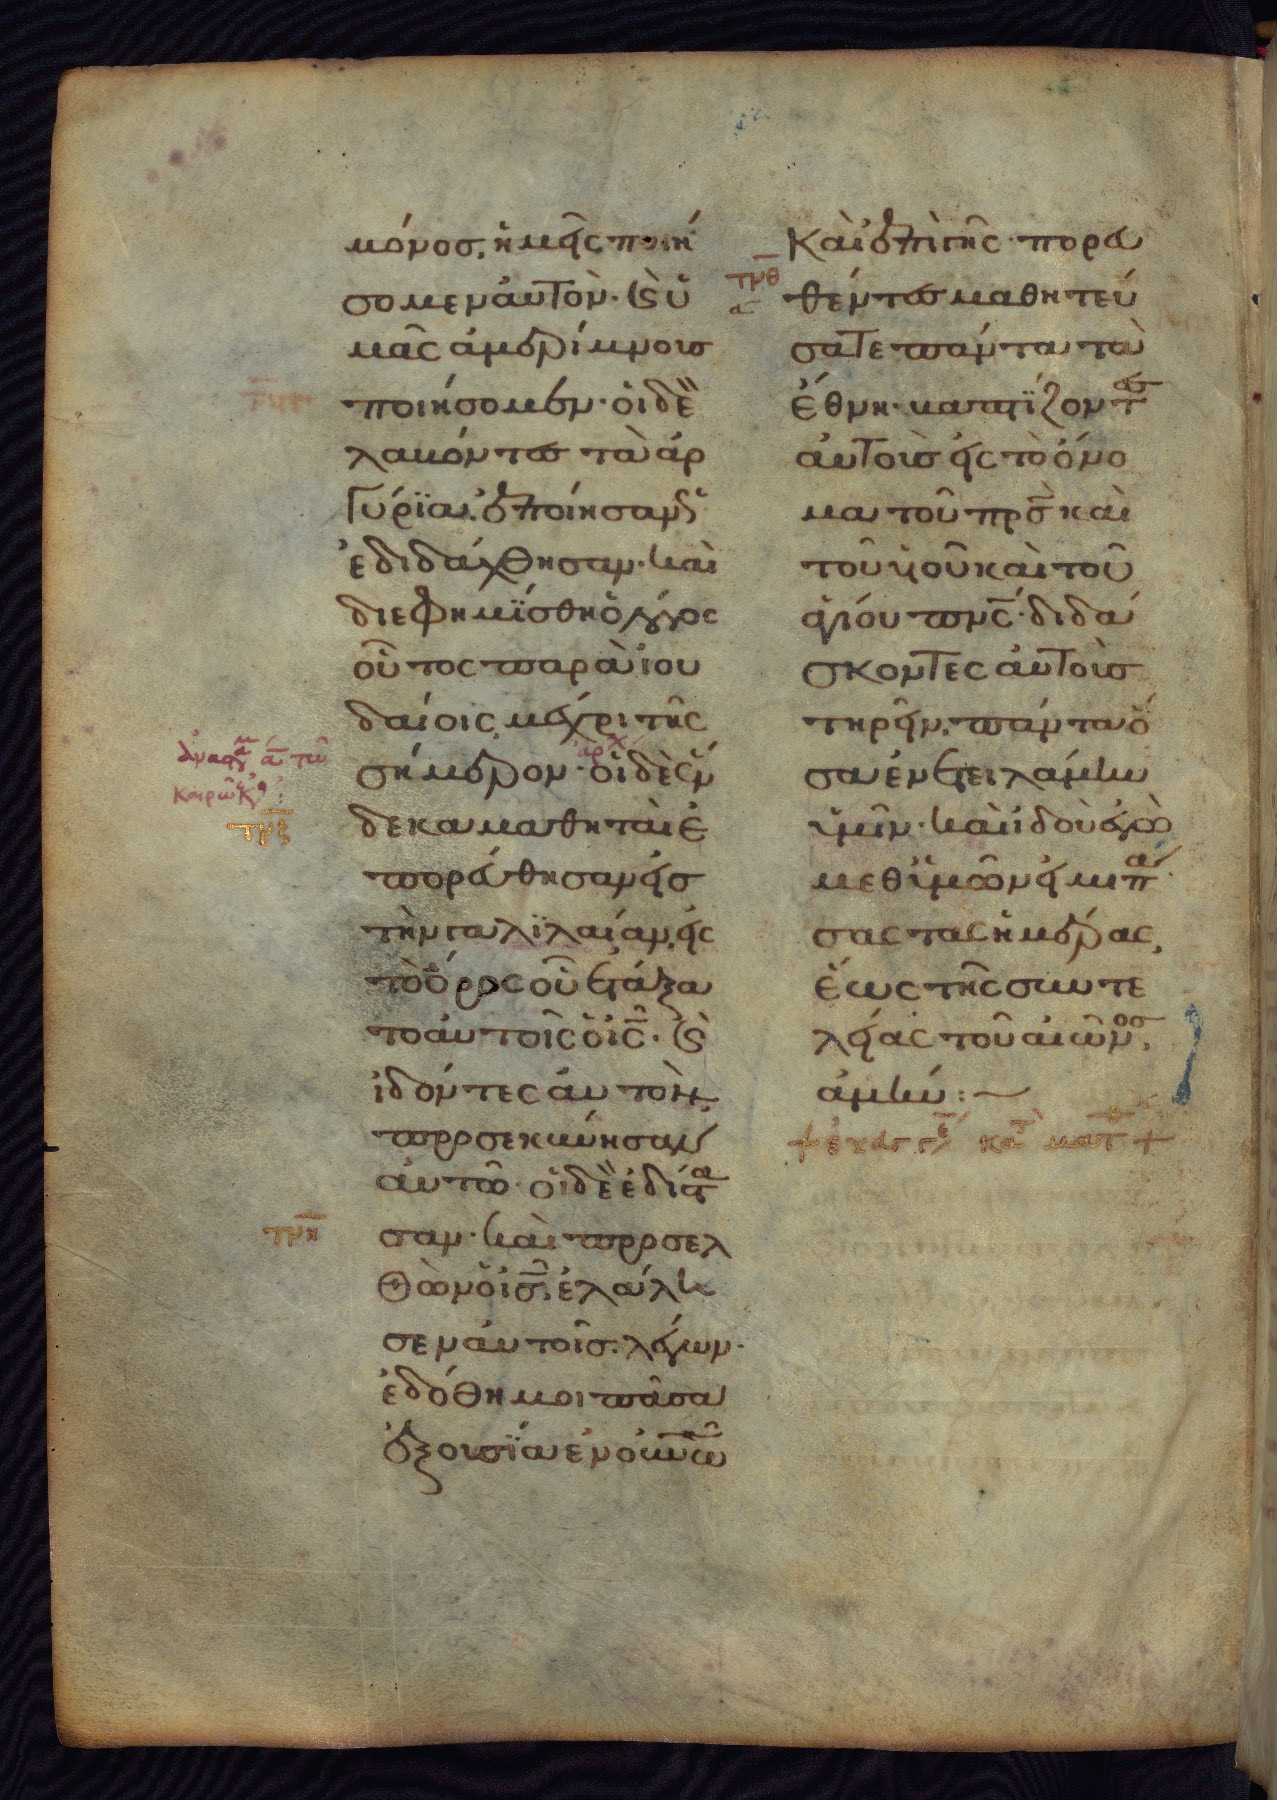 μόνοσ, ἡμεῖς ποιή
σομεν ἀυτὸν· ϗ ὑ
μᾶς ἀμερίμνουσ
ποιήσομεν· οἱ δὲ
λαβόντεσ τὰ ἀρ
γύρϊα, ἐποίησαν ὡ
ἐδιδάχθησαν· καὶ
διεφημίσθη ὁ λόγος
οὗτος παρὰ ϊου
δαίοις, μέχρι τῆς
ἀρχ
ἀναστα α τῶ
σήμερον· οἱ δὲ ἕν
καιρῶ ἐκείνω:
δεκα μαθηταὶ ἐ
τνζ
πορεύθησαν εἰσ
τὴν γαλϊλαίαν, εἰς
τὸ ὄρος οὗ ἐτάξα
το ἀυτοῖς ὁ ις· ϗ
ϊδόντες ἀυτὸν
προσεκύνησαν
ἀυτῶ· οἱ δὲ ἐδίστα
τνη
σαν· καὶ προσελ
θὼν ὁ ισ, ἐλάλη
σεν ἀυτοῖσ· λέγων·
ἐδόθη μοι πᾶσα
ἐξουσία ἐν οὐνῶ
καὶ ἐπὶ γῆς· πορευ
τνθ
θέντεσ μαθητεύ
σατε πάντα τὰ
ἔθνη· βαπτίζοντας
ἀυτοὺσ εἰς τὸ ὄνο
μα τοῦ πρσ καὶ
τοῦ υἱοῦ καὶ τοῦ
ἁγίου πνς· διδά
σκοντες ἀυτοὺσ
τηρεῖν, πάντα ὅ
σα ἐνετειλάμην
ὑμῖν· καὶ ϊδοὺ ἐγὼ
μεθ ὑμῶν εἰμι πά
σας τὰς ἡμέρας,
ἕως τῆς συντε
λείας τοῦ αἰῶνος,
ἀμήν:~